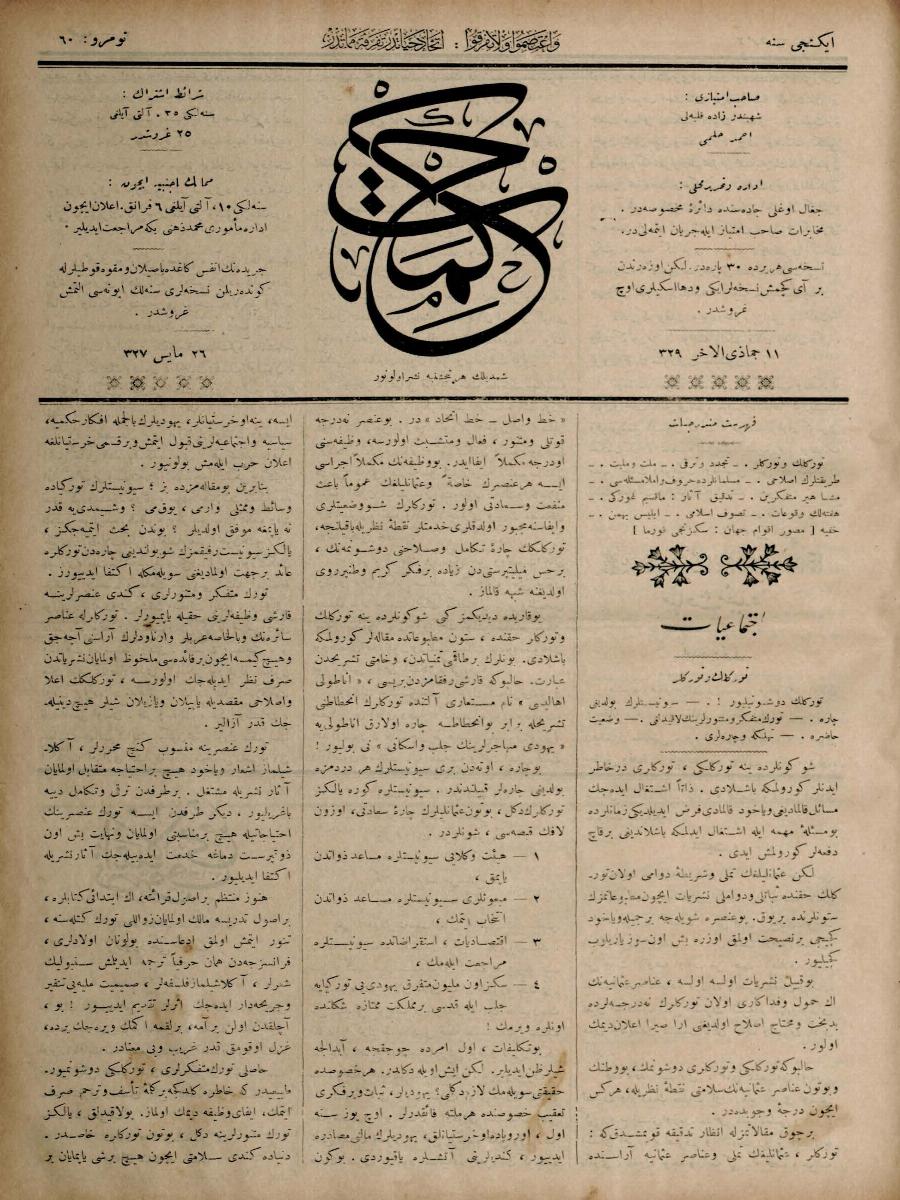 ایكنجی سنه
واعتصموا ولا تفرقوا : اتحاد حیاتدر تفرقه مماتدر
نومرو : ٦٠
صاحب امتیازی :
شهبندر زاده فلبه‌لی
احمد حلمی
اداره و تحریر محلی :
جغال اوغلی جاده‌سنده دائرهٔ مخصوصه‌در .
مخابرات صاحب امتیاز ایله جریان ایتملی‌در.
نسخه‌سی هر یرده ٣٠ پاره‌در. لكن اوزه‌رندن
بر آی كچمش نسخه‌لر ایكی و دها اسكیلری اوچ
غروشدر .
١١ جماذی الاخر ٣٢٩
حكمت
شمدیلك هر پنجشنبه نشر اولونور
شرائط اشتراك :
سنه‌لكی ٣٥ . آلتی آیلغی
٢٥ غروشدر
ممالك اجنبیه ایچون :
سنه‌لكی ١٠، آلتی آیلغی ٦ فرانق. اعلان ایچون
اداره مأموری محمد ذهنی بكه مراجعت ایدیلیر .
جریده‌نك انفس كاغده باصیلان و مقوه قوطیلرله
كوندریلن نسخه‌لری سنه‌لك ابونه‌سی التمش
غروشدر .
٢٦ مایس ٣٢٧
فهرست مندرجات
توركلك و توركلر . ـ تجدد و ترقی . ـ ملت و ملیت . ـ
طریقتلرك اصلاحی . ـ مسلمانلرده حروف و املا مسئله‌سی . ـ
مشاهیر متفكرین . ـ تدقیق آثار : ماقسیم غوركی . ـ
هفته‌لك وقوعات . ـ تصوف اسلامی . ـ ابلیس بهمن . ـ
خفیه [ مصور اقوام جهان : سكزنجی فورما ]
اجتماعیات
توركلك و توركلر
توركلك دوشونیلیور ! . — سیونیستلرك بولدیغی
چاره . — تورك متفكر و متنورلرینك لاقیدلغی . — وضعیت
حاضره . — تهلكه و چاره‌لری .
شو كونلرده ینه توركلكی ، توركلری درخاطر
ایدنلر كورولمكه باشلادی . ذاتاً اشتغال ایده‌جك
مسائل قالمادیغی ویاخود قالمادی فرض ایدیلدیكی زمانلرده
بو مسئلهٔ مهمه ایله اشتغال ایدلمكه باشلاندیغی برقاچ
دفعه‌لر كورولمش ایدی .
لكن عثمانلیلغك تملی و شریطهٔ دوامی اولان تور‌
كلك حقنده ثباتلی و دواملی نشریات ایچون مطبوعاتمزك
ستونلرنده یر یوق. بو عنصره شویله‌جه بر جمیله ویاخود
كچیجی بر نصیحت اولمق اوزره بش اون سوز یازیلوب
كچیلیور .
بو قبیل نشریات اولسه اولسه ، عناصر عثمانیه‌نك
اك حمول و فداكاری اولان توركلرك نه‌درجه‌لرده
بدبخت و محتاج اصلاح اولدیغی ارا صیرا اعلان دیمك
اولور .
حالبوكه توركلكی و توركلری دوشونمك ، بو وطنك
و بوتون عناصر عثمانیه‌نك سلامتی نقطهٔ نظریله، هركس
ایچون درجهٔ وجوبده‌در .
برچوق مقالاتمزله انظار تدقیقه قویمشدق كه :
توركلر ، عثمانلیلغك تملی و عناصر عثمانیه آراسنده
« خط واصل ـ خط اتحاد » در . بو عنصر نه‌درجه
قوتلی و متنور ، فعال و متشبث اولورسه، وظیفه‌سنی
اودرجه مكملاً ایفا ایدر. بو وظیفه‌نك مكملاً اجراسی
ایسه هر عنصرك خاصةً و عثمانلیلغك عموماً باعث
منفعت و سعادتی اولور . توركلرك شو وضعیتلری
و ایفاسنه مجبور اولدقلری خدمتلر نقطهٔ نظریله باقیلنجه،
توركلكك چارهٔ تكامل و صلاحنی دوشونمه‌نك ،
بر حس ملیتپرستی‌دن زیاده بر فكر كریم وطنپروری
اولدیغنه شبهه قالماز .
یوقاریده دیدیكمز كبی شو كونلرده ینه توركلك
و توركلر حقنده ، ستون مطبوعاتده مقاله‌لر كورولمكه
باشلادی. بونلرك بر طاقمی تمنیاتدن، وخامتی تشریحدن
عبارت. حالبوكه قارشی رفقامزدن بریسی ، « اناطولی
اهالیسی » نام مستعاری آلتنده توركلرك انحطاطنی
تشریحله برابر بو انحطاطه چاره اولارق اناطولی‌یه
« یهودی مهاجرلرینك جلب و اسكانی » نی بولیور !
بو چاره ، اوته‌دن بری سیونیستلرك هر دردمزه
بولدیغی چاره‌لر قبیلندندر . سیونیستلره كوره یالكز
توركلرك دكل ، بوتون عثمانلیلرك چارهٔ سعادتی، اوزون
لافك قیصه‌سی ، شونلردر .
١ — هیئت وكلایی سیونیستلره مساعد ذواتدن
یاپمق ،
٢ — مبعوثلری سیونیستلره مساعد ذواتدن
انتخاب ایتمك ،
٣ — اقتصادیات ، استقراضاتده سیونیستلره
مراجعت ایله‌مك ،
٤ — سكز اون ملیون متفرق یهودی‌یی توركیایه
جلب ایله قدسی بر مملكت ممتازه شكلنده
اونلره ویرمك !
بو تكلیفات ، اول امرده چوجقجه ، آبدالجه
شیلر ظن ایدیلیر. لكن ایش اویله دكلدر. هر خصوصده
حقیقتی سویله‌مك لازم دكلمی؟ یهودیلر، ثبات و بر فكری
تعقیب خصوصنده هر ملته فائقدرلر . اوچ یوز سنه
اول ، اوروپاده اوخرستیانلق، یهودیلرك مالنی مصادره
ایدییور ، كندیلرینی آتشلره یاقیوردی . بوكون
ایسه، ینه اوخرستیانلر، یهودیلرك بالجمله افكار حكمیه،
سیاسیه و اجتماعیه‌لرینی قبول ایتمش و بر قسمی خرستیانلغه
اعلان حرب ایله‌مش بولونیور .
بناءً برین بو مقاله‌مزده بز ؛ سیونیستلرك توركیاده
وسائط و ممثلی وارمی ، یوق‌می ؟ و شیمدی‌یه قدر
نه یاپمغه موفق اولدیلر ؟ بوندن بحث ایتمیه‌جكز ،
یالكز سیونیست رفیقمزك شو بولدیغی چاره‌دن توركلره
عائد بر جهت اولمادیغنی سویله‌مكله اكتفا ایدییورز .
تورك متفكر و متنورلری ، كندی عنصرلرینه
قارشی وظیفه‌لرینی حقیله یاپمیورلر. توركلرله عناصر
سائره‌نك و بالخاصه عربلر و ارناودلرك آراسنی آچه‌جق
و هیچ كیمسه ایچون بر فائده‌سی ملحوظ اولمایان نشریاتدن
صرف نظر ایدیله‌جك اولورسه ، توركلكك اعلا
و اصلاحی مقصدیله یاپیلان و یازیلان شیلر هیچ دینیله‌
جك قدر آزالیر .
تورك عنصرینه منسوب كنج محررلر ، آكلا‌
شیلماز اشعار ویاخود هیچ بر احتیاجه متقابل اولمایان
آثار نشریله مشتغل . بر طرفدن ترقی و تكامل دییه
باغریلیور . دیكر طرفدن ایسه تورك عنصرینك
احتیاجاتیله هیچ بر مناسبتی اولمایان و نهایت بش اون
ذوقپرست دماغه خدمت ایده‌بیله‌جك آثار نشریله
اكتفا ایدیلیور .
هنوز منتظم بر اصول قرائته، اك ابتدائی كتابلره ،
بر اصول تدریسه مالك اولمایان زواللی تورك كتله‌سنه ،
تنور ایتمش اولمق ادعاسنده بولونان اولادلری،
فرانسزجه‌دن همان حرفیاً ترجمه ایدیلمش سنبولیك
شعرلر ، آكلاشیلماز فلسفه‌لر ، صمیمیت ملیه‌یی تنفیر
و جریحه‌دار ایده‌جك اثرلر تقدیم ایدییور ! بو ،
آچلقدن اولن بر آدمه، بر لقمه اكمك ویره‌جك یرده،
غزل اوقومق قدر غریب و بی معنادر .
حاصلی تورك متفكرلری ، توركلكی دوشونمیور.
مابیعدی كه خاطره كلدكجه بر كلمهٔ تأسف و ترحم صرف
ایتمك، ایفای وظیفه دیمك اولماز. بو لاقیدلق ، یالكز
تورك متنورلرینه دكل ، بوتون توركلره خاصدر .
دنیاده كندی سلامتی ایچون هیچ بر شی یاپمایان بر